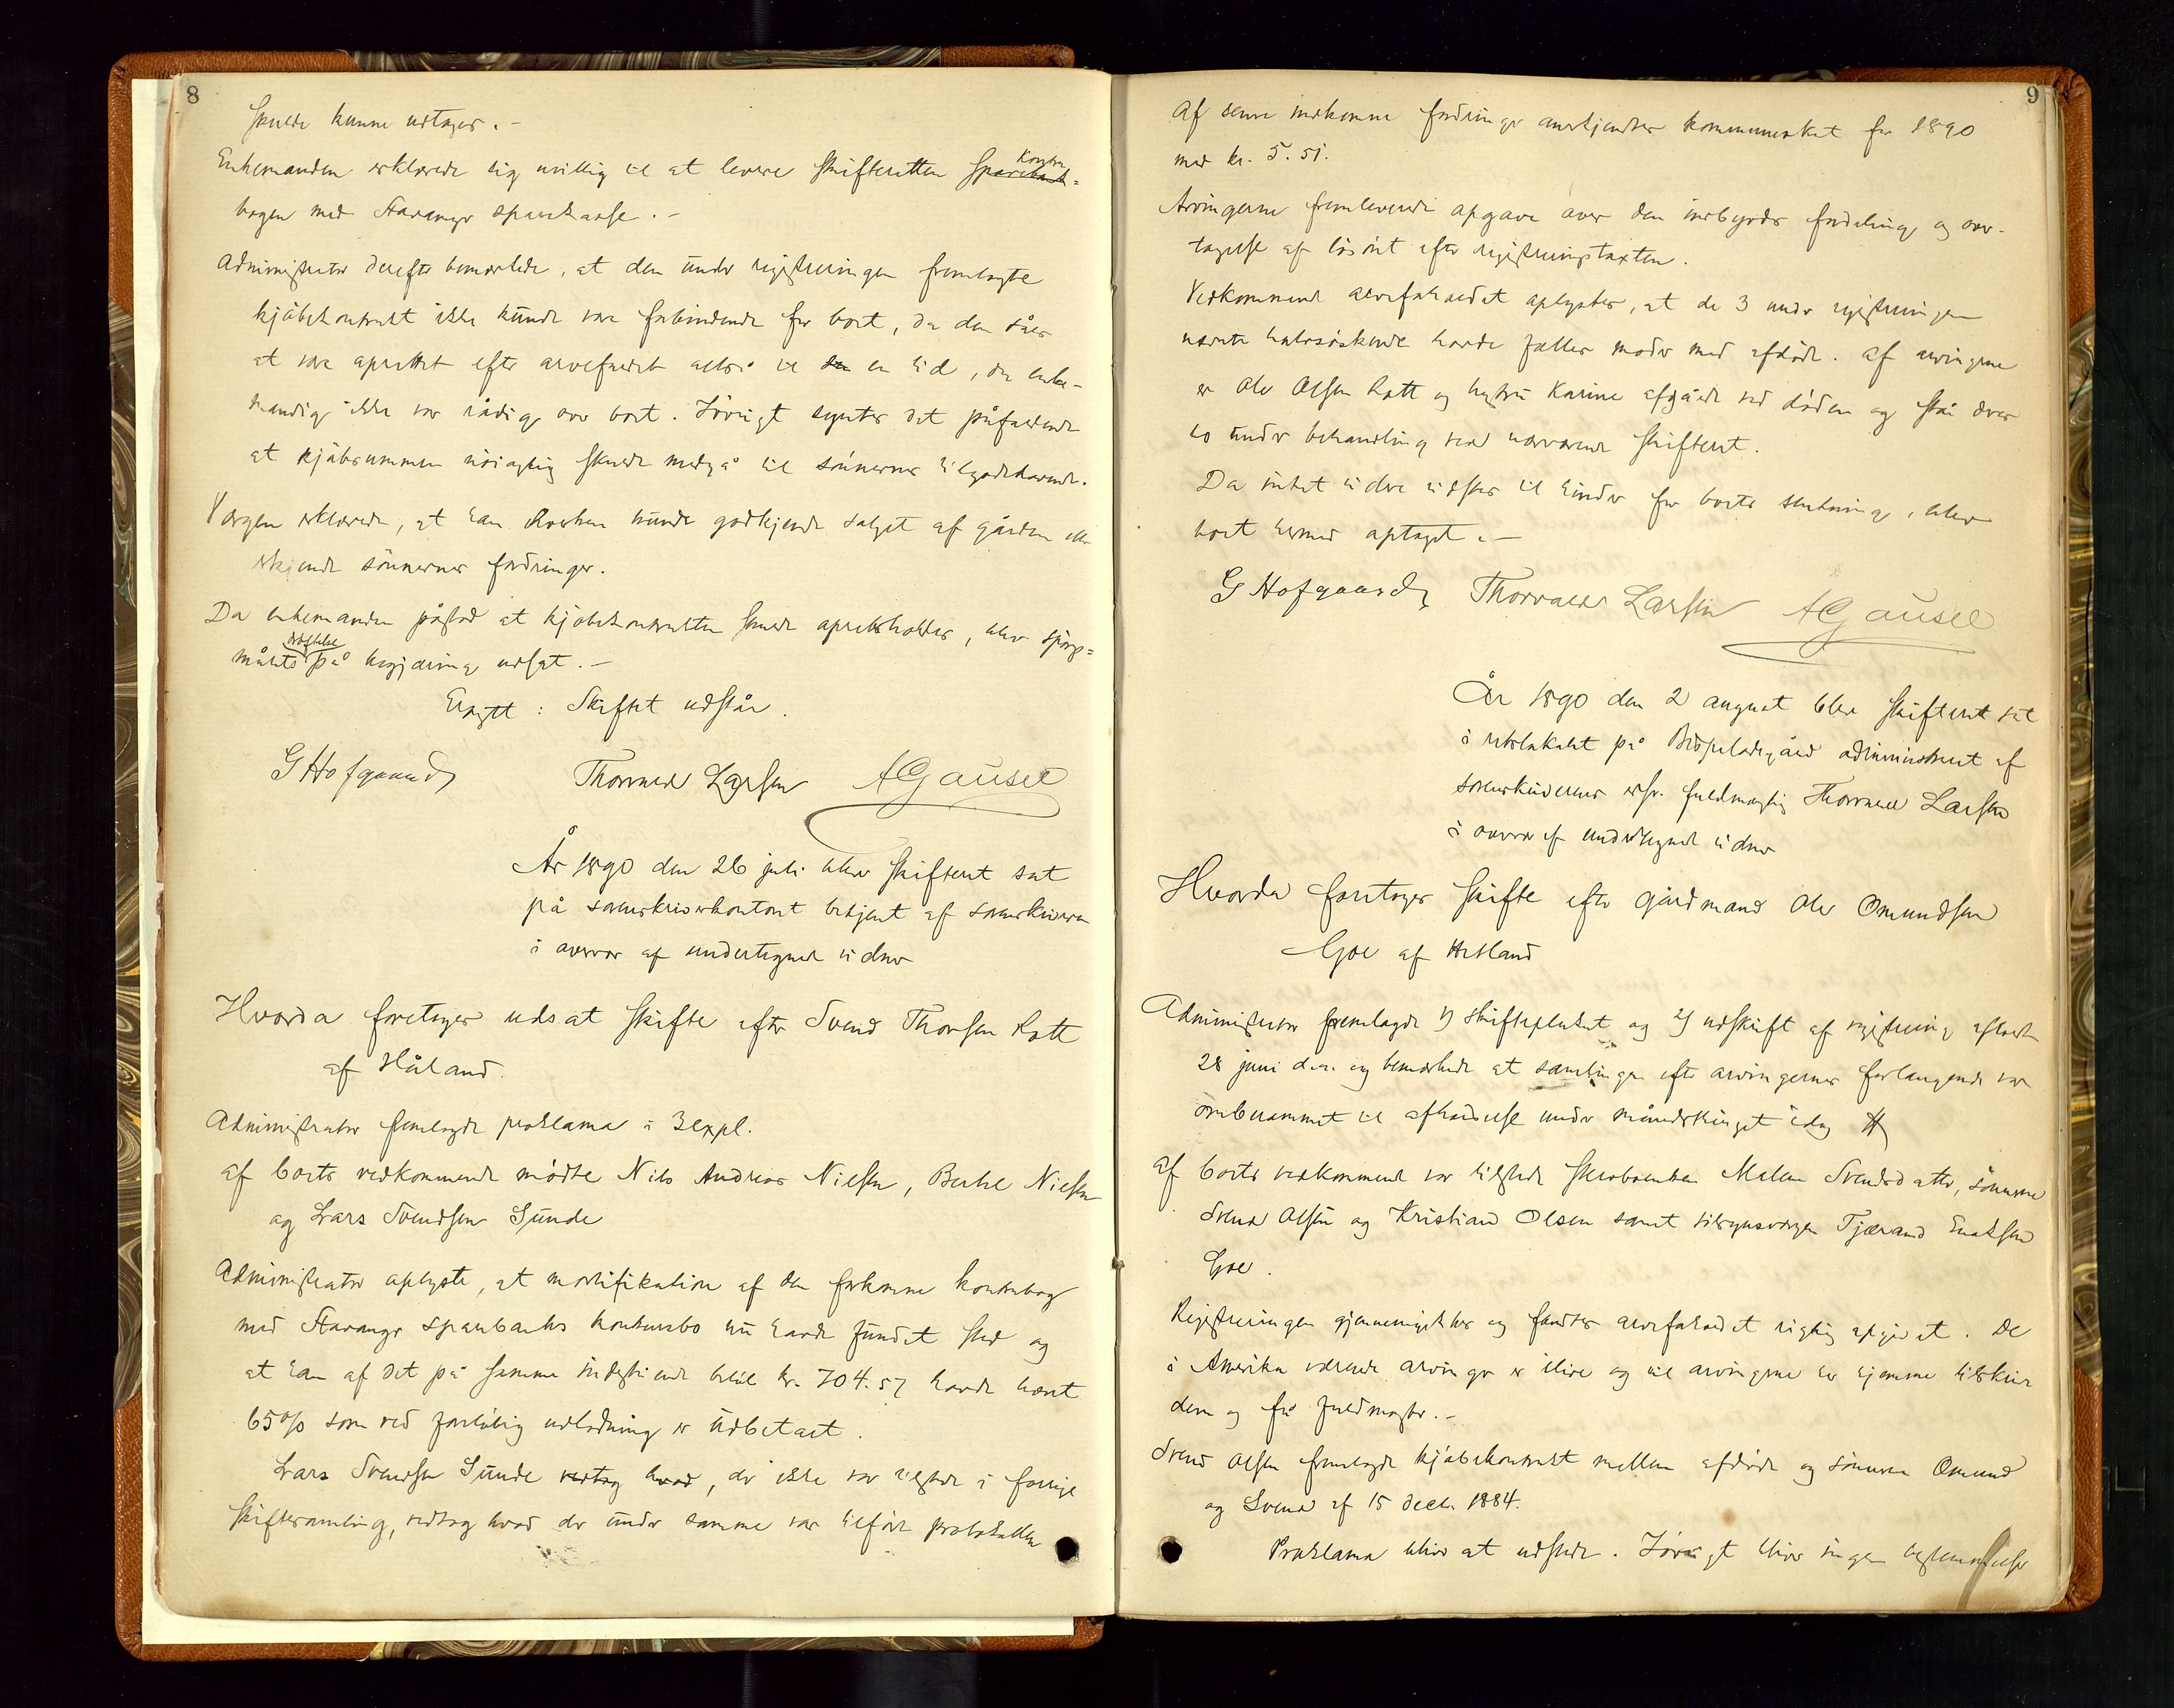 8
skulde kunne udtages. –
Enkemanden erklærede sig uvillig til at levere skifteretten Sparebank= Kontra
bogen med Stavanger sparekasse. –
Administrator derefter bemærkede, at den under registreringen fremlagte
kjöbekontrakt ikke kunde være forbindende for boet, da den såes
at være oprettet efter arvefaldet altså til en tid, da enke-
mandig ikke var rådig over boet. Iövrigt syntes det påfaldende
at kjöbesummen nöiagtig skulde medgå til sönnernes tilgodehavende.
Værgen erklærede, at han hverken kunde godkjende salget af gården eller
erkjende sönnernes fordringer.
Da enkemanden påstod at kjöbekontrakten skulde opretholdes, blev spörgs=
målets afgjörelse på begjæring udsat. –
Eragtt: Skiftet udstår.
G Hofgaard Thorvald Larsen A Gausel
År 1890 den 26 juli blev skifteret sat
på sorenskriverkontoret betjent af sorenskriveren
i overvær af undertegnede vidner
Hvorda foretoges udsat skifte efter Svend Thorsen Rott
af Håland.
Administrator fremlagde proklama i 3 expl.
Af boets vedkommende mödte Nils Andreas Nielsen, Bertel Nielsen
og Lars Svendsen Sunde
Administrator oplyste, at mortifikation af den forkomne kontrabog
med Stavanger sparebanks konkursbo nu havde fundet sted og
at han af det på samme indestående belöb kr. 704.57 havde hævet
65% som ved forelöbig udlodning er udbetalt.
Lars Svendsen Sunde vedtog hvad, der ikke var tilstede i forrige
skiftesamling, vedtog hvad der under samme var tilfört protokollen
9
Af senere indkomne fordringer anerkjendtes kommuneskat for 1890
med kr. 5.51.
Arvingerne fremleverede opgave over den indbyrdes fordeling og over-
tagelse af lösöret efter registreringstaxten.
Vedkommende arvefaldet oplystes, at de 3 under registreringen
nævnte halvsöskende havde fælles moder med afdöde. Af arvingerne
er Ole Olsen Rott og hustru Karine afgåede ved döden og står deres
bo under behandling ved nærværende skifteret.
Da intet videre vidstes til hinder for boets slutning, blev
boet hermed optaget. –
G Hofgaard Thorvald Larsen A Gausel
År 1890 den 2 august blev skifteret sat
i retslokalet på Bispeladegård administreret af
sorenskriverens edsv. fuldmægtig Thorvald Larsen
i overvær af undertegnede vidner
Hvorda foretoges skifte efter gårdmand Ole Omundsen
Goe af Hetland
Administrator fremlagde 1) skifteplakat og 2) udskrift af registrering afholdt
28 juni d.a. og bemærkede at samlingen efter arvingernes forlangende var
omberammet til afholdelse under månedstinget idag
Af boets vedkommende var tilstede skrøboenken Malene Svendsdatter, sönnerne
Svend Olsen og Kristian Olsen samt tilsynsværgen Tjærand Enoksen
Goe.
Registreringen gjennemgikkes og fandtes arvefaldet rigtig opgivet. De
i Amerika værende arvinger er ilive og vil arvingerne her hjemme tilskrive
dem og få fuldmagter. –
Svend Olsen fremlagde kjöbekontrakt mellem afdöde og sönnerne Omund
og Svend af 15 decbr. 1884.
Proklama bliver at udstede. Iövrigt blev ingen bestemmelser